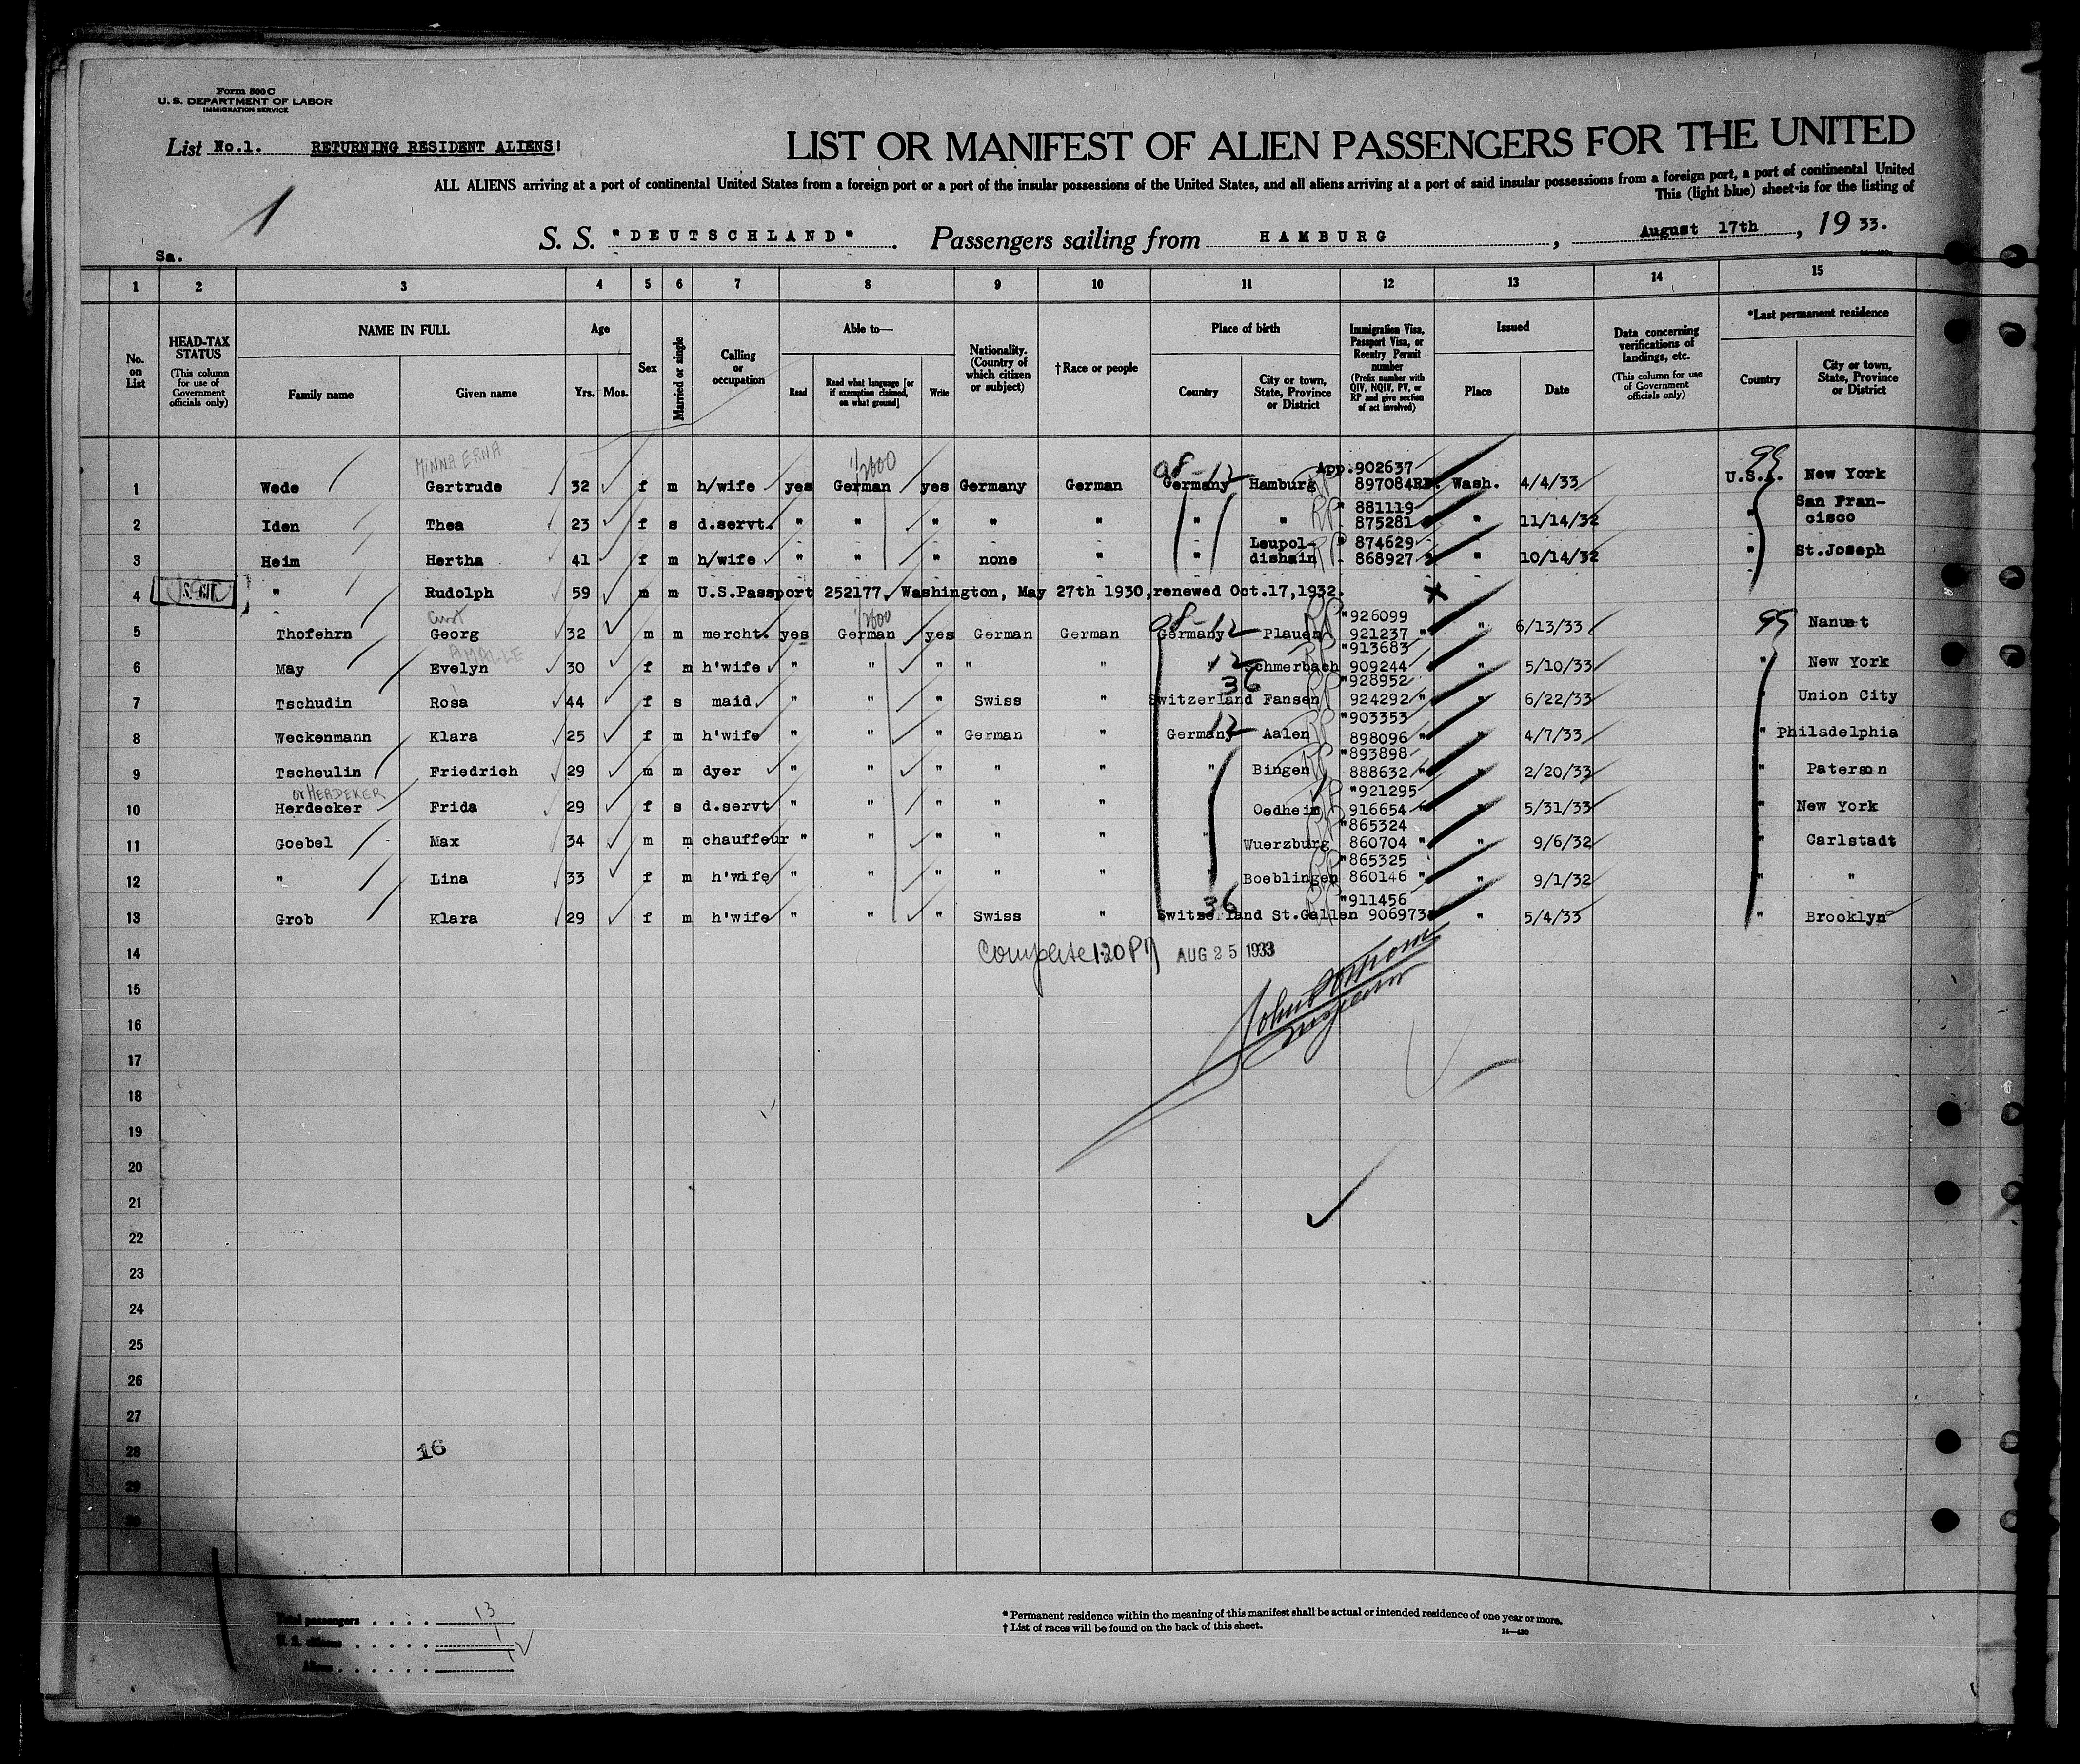 Form 500 C
U. S. DEPARTMENT OF LABOR
IMMIGRATION SERVICE
List No.1. RETURNING RESIDENT ALIENS!
LIST OR MANIFEST OF ALIEN PASSENGERS FOR THE UNITED
ALL ALIENS arriving at a port of continental United States from a foreign port or a port of the insular possessions of the United States, and all aliens arriving at a port of said insular possessions from a foreign port, a port of continental United
This (light blue) sheet is for the listing of
1
S. S. "DEUTSCHLAND". Passengers sailing from HAMBURG, August 17th, 19 33.
Sa.
1 2 3 4 5 6 7 8 9 10 11 12 13 14 15
No. on List
HEAD-TAX STATUS (This column for use of Government officials only)
NAME IN FULL Family name Given name
Age Yrs. Mos.
Sex
Married or single
Calling or occupation
Able to— Read Read what language [or if exemption claimed, on what ground] Write
Nationality. (Country of which citizen or subject)
†Race or people
Place of birth Country City or town, State, Province or District
Immigration Visa, Passport Visa, or Reentry Permit number (Prefix number with QIV, NQIV, PV, or RP and give section of act involved)
Issued Place Date
Data concerning verifications of landings, etc. (This column for use of Government officials only)
*Last permanent residence Country City or town, State, Province or District
MINNA ERNA 98-12 App.902637 99
1 Wede Gertrude 32 f m h/wife yes German yes Germany German Germany Hamburg 897084RP. Wash. 4/4/33 U.S.A. New York
RP " 881119 San Fran-
2 Iden Thea 23 f s d.servt. " " " " " " " 875281 " " 11/14/32 " cisco
Leupol- RP " 874629
3 Heim Hertha 41 f m h/wife " " " none " " dishain 868927 " " 10/14/32 " St.Joseph
4 " Rudolph 59 m m U.S.Passport 252177, Washington, May 27th 1930, renewed Oct.17,1932. x
Curt 98-12 RP "926099 99
5 Thofehrn Georg 32 m m mercht. yes German yes German German Germany Plauen 921237 " " 6/13/33 Nanuet
AMALIE RP "913683
6 May Evelyn 30 f m h'wife " " " " " " 12 Schmerbach 909244 " " 5/10/33 " New York
36 RP "928952
7 Tschudin Rosa 44 f s maid " " " Swiss " Switzerland Fansen 924292 " " 6/22/33 " Union City
12 RP "903353
8 Weckenmann Klara 25 f m h'wife " " " German " Germany Aalen 898096 " " 4/7/33 " Philadelphia
RP "893898
9 Tscheulin Friedrich 29 m m dyer " " " " " " Bingen 888632 " " 2/20/33 " Paterson
or HERDEKER RP "921295
10 Herdecker Frida 29 f s d.servt " " " " " Oedheim 916654 " " 5/31/33 " New York
RP "865324
11 Goebel Max 34 m m chauffeur " " " " " " Wuerzburg 860704 " " 9/6/32 " Carlstadt
RP "865325
12 " Lina 33 f m h'wife " " " " " " Boeblingen 860146 " " 9/1/32 " "
36 RP "911456
13 Grob Klara 29 f m h'wife " " " Swiss " Switzerland St.Gallen 906973 " 5/4/33 " Brooklyn
14 Complete 1:20 PM AUG 25 1933
15
16
17
18
19
20
21
22
23
24
25
26
27
28 16
29
30
Total passengers . . . . 13
U. S. citizens . . . . . 1
Aliens . . . . . . 12
* Permanent residence within the meaning of this manifest shall be actual or intended residence of one year or more.
† List of races will be found on the back of this sheet.
14—430